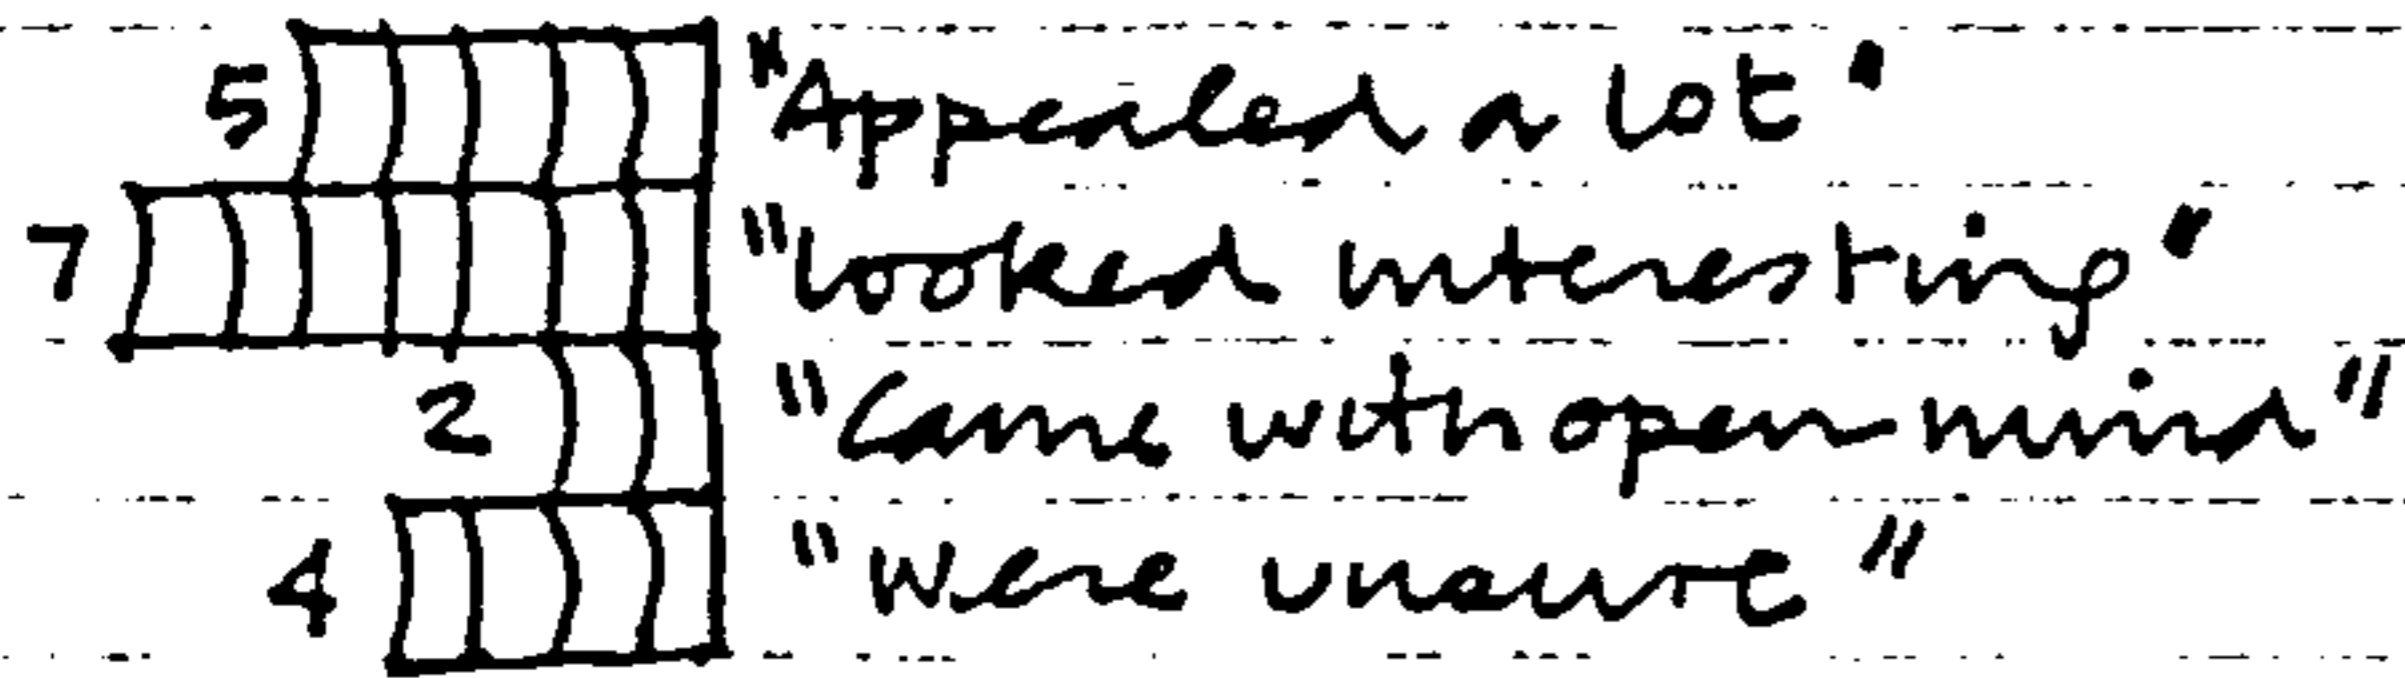 5 "Appealed a lot"
7 "Looked interesting"
2 "Came with open mind"
4 "Were unsure"